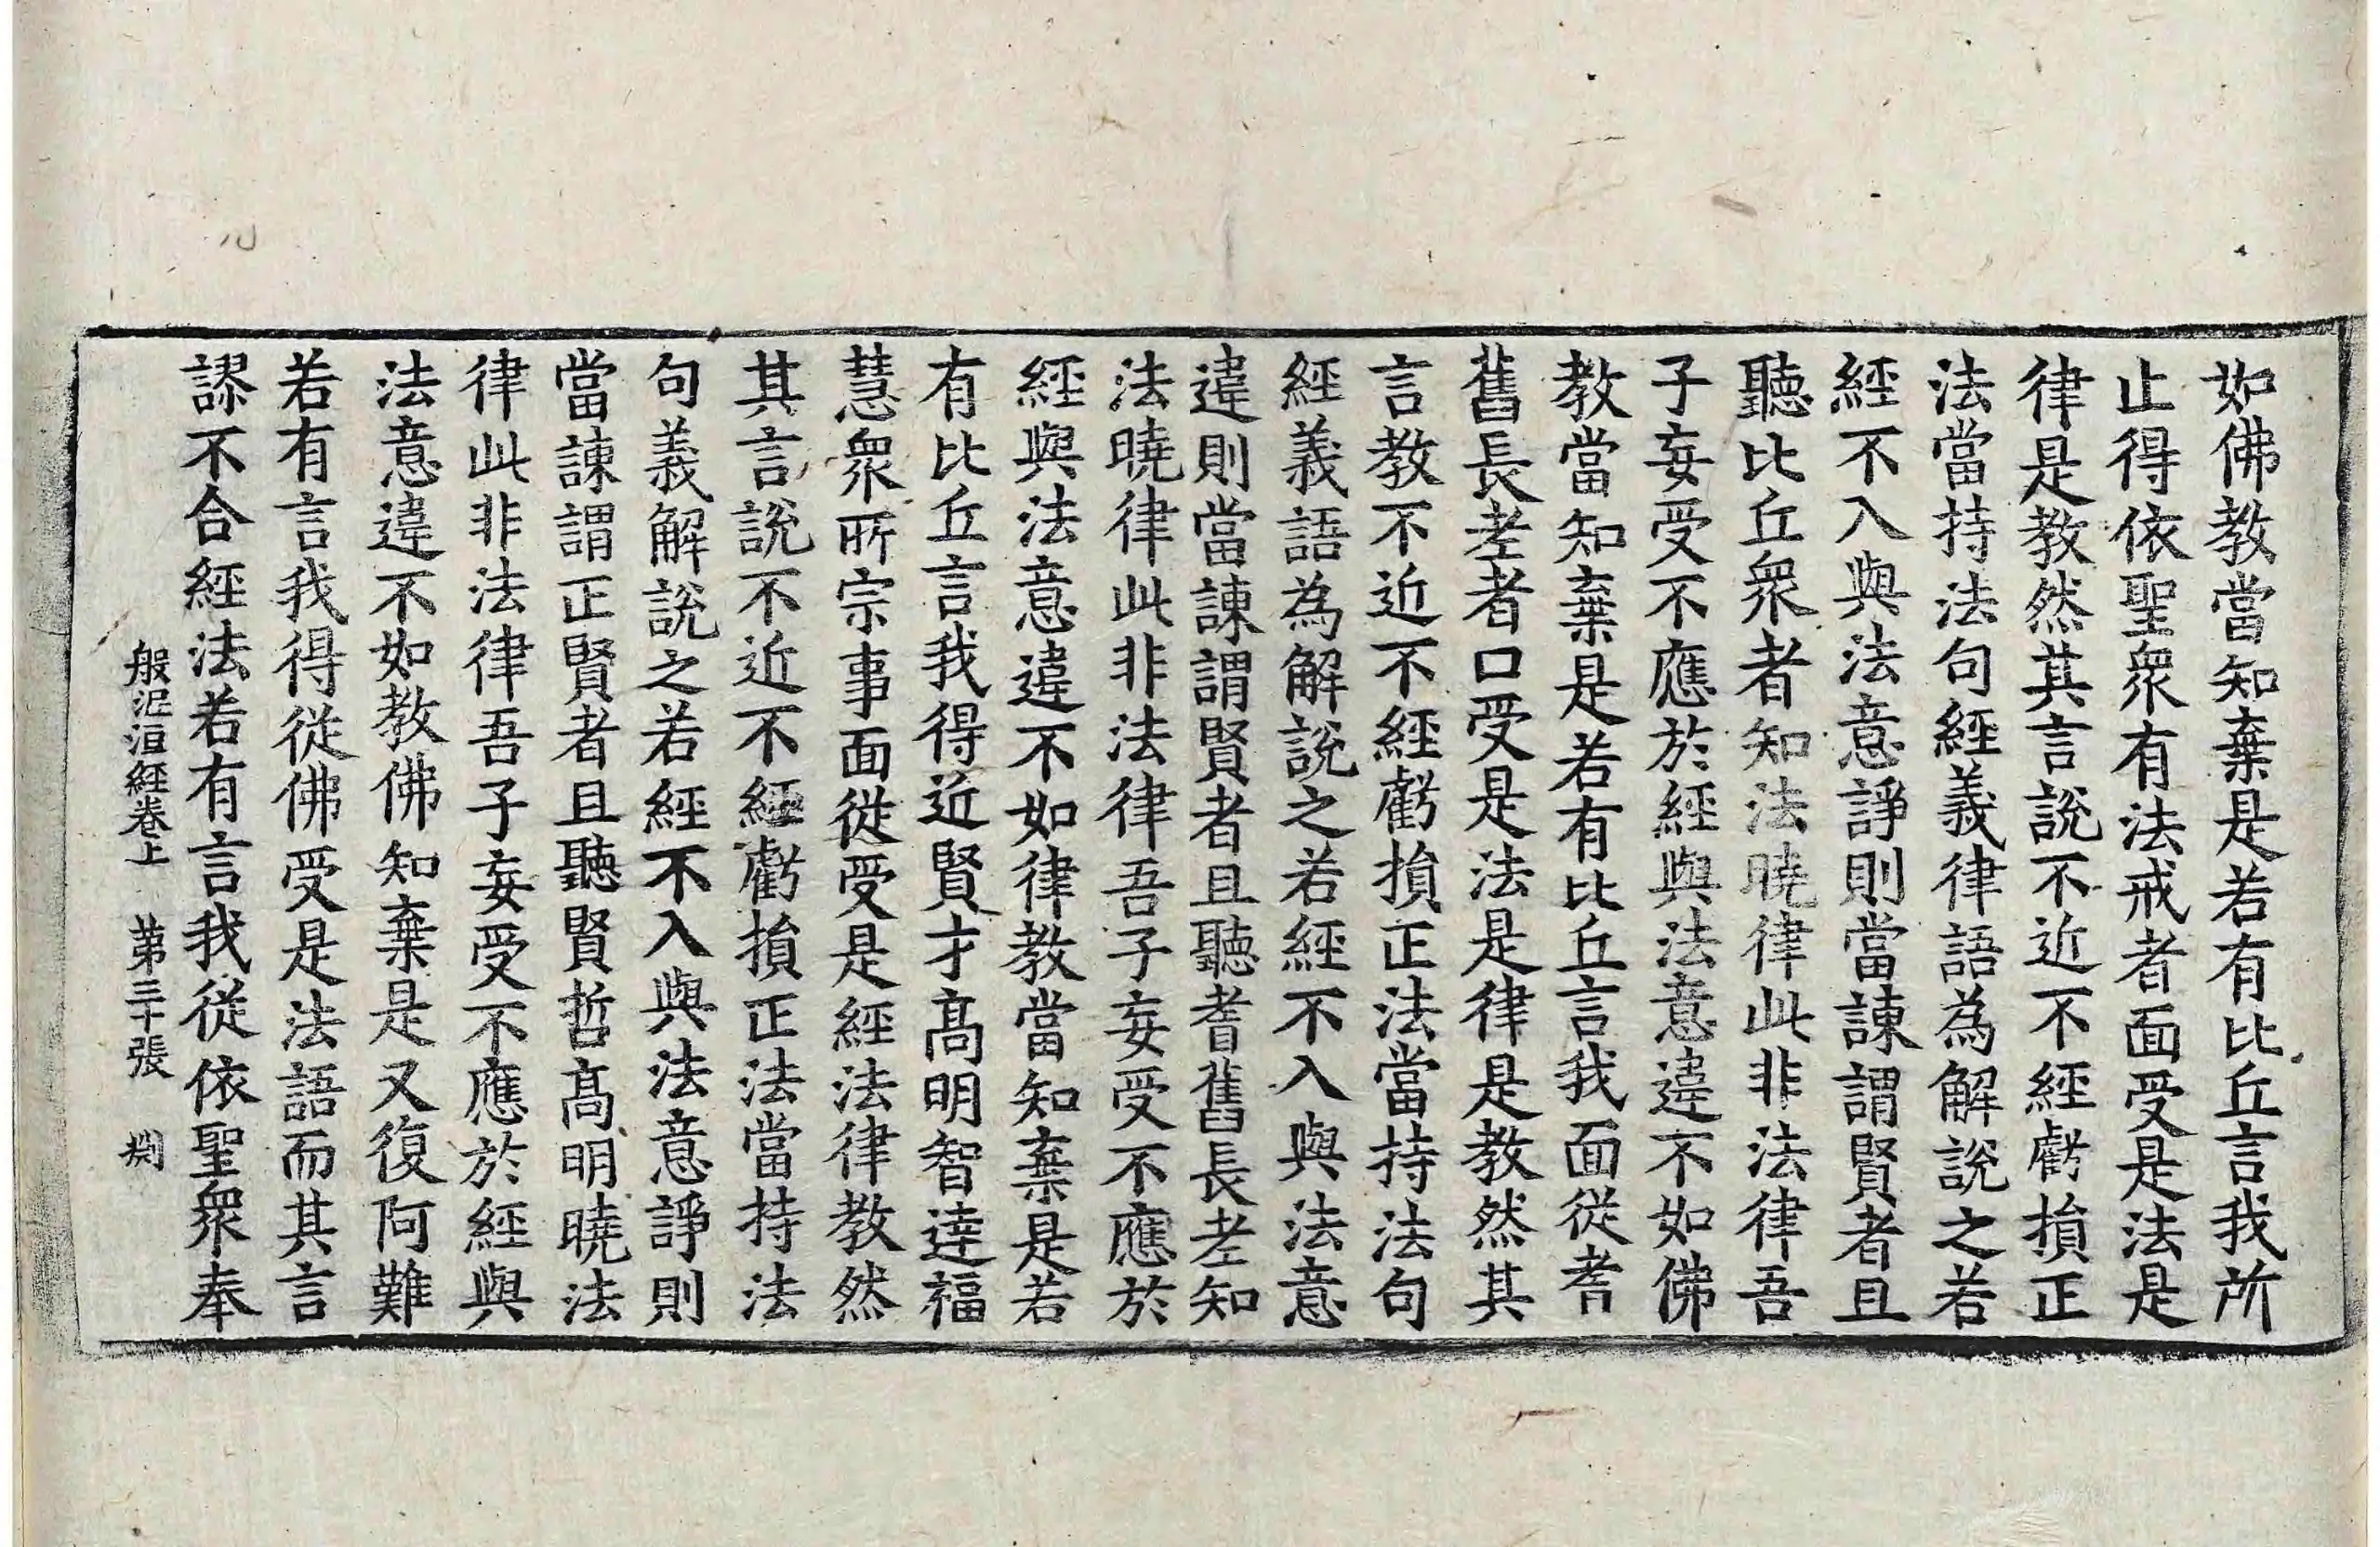 如佛教當知棄是若有比丘言我所
止得依聖衆有法戒者面受是法是
律是教然其言說不近不經虧損正
法當持法句經義律語為解說之若
經不入與法意諍則當諫謂賢者且
聽比丘衆者知法曉律此非法律吾
子妄受不應於經與法意違不如佛
教當知棄是若有比丘言我面從耆
舊長老者口受是法是律是教然其
言教不近不經虧損正法當持法句
經義語為解說之若經不入與法意
違則當諫謂賢者且聽耆舊長老知
法曉律此非法律吾子妄受不應於
經與法意違不如律教當知棄是若
有比丘言我得近賢才高明智達福
慧衆所宗事面從受是經法律教然
其言說不近不經虧損正法當持法
句義解說之若經不入與法意諍則
當諫謂正賢者且聽賢哲高明曉法
律此非法律吾子妄受不應於經與
法意違不如教佛知棄是又復阿難
若有言我得從佛受是法語而其言
謬不合經法若有言我從依聖衆奉
般泥洹經卷上 第三十張